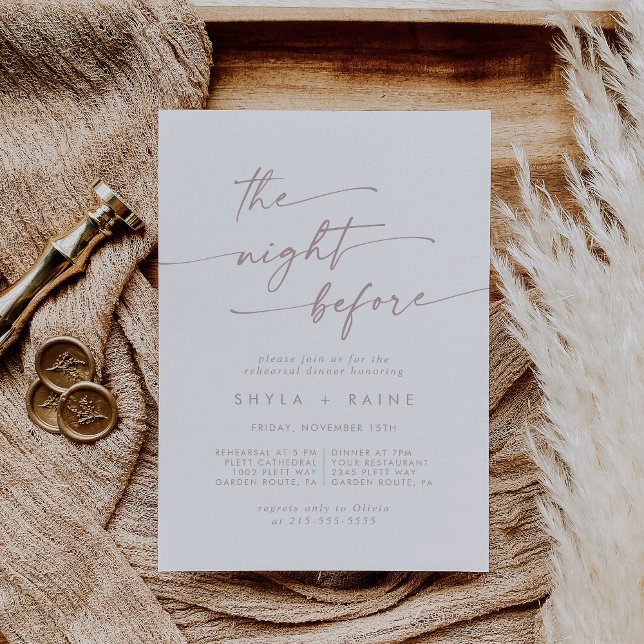 the
night
before
please join us for the
rehearsal dinner honoring
SHYLA + RAINE
FRIDAY, NOVEMBER 15TH
REHEARSAL AT 5 PM
PLETT CATHEDRAL
1002 PLETT WAY
GARDEN ROUTE, PA
DINNER AT 7PM
YOUR RESTAURANT
2345 PLETT WAY
GARDEN ROUTE, PA
regrets only to Olivia
at 215-555-5555